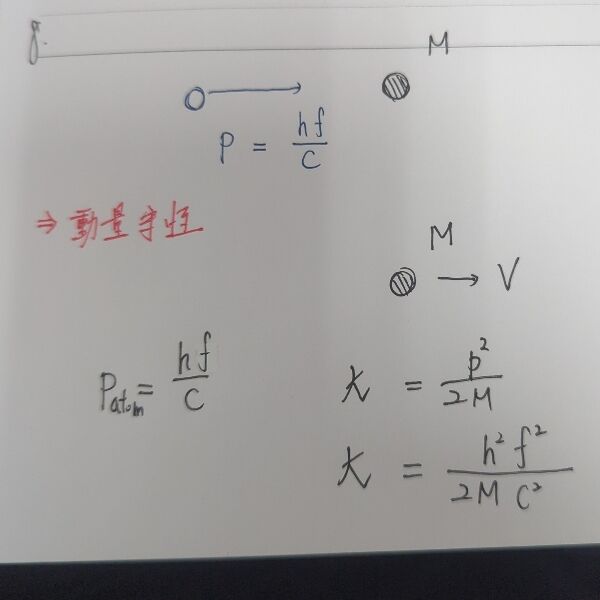 8.
M
P = hf/C
⇒ 動量守恆
M
→ V
Patom = hf/C
K = p²/2M
K = h²f²/2MC²